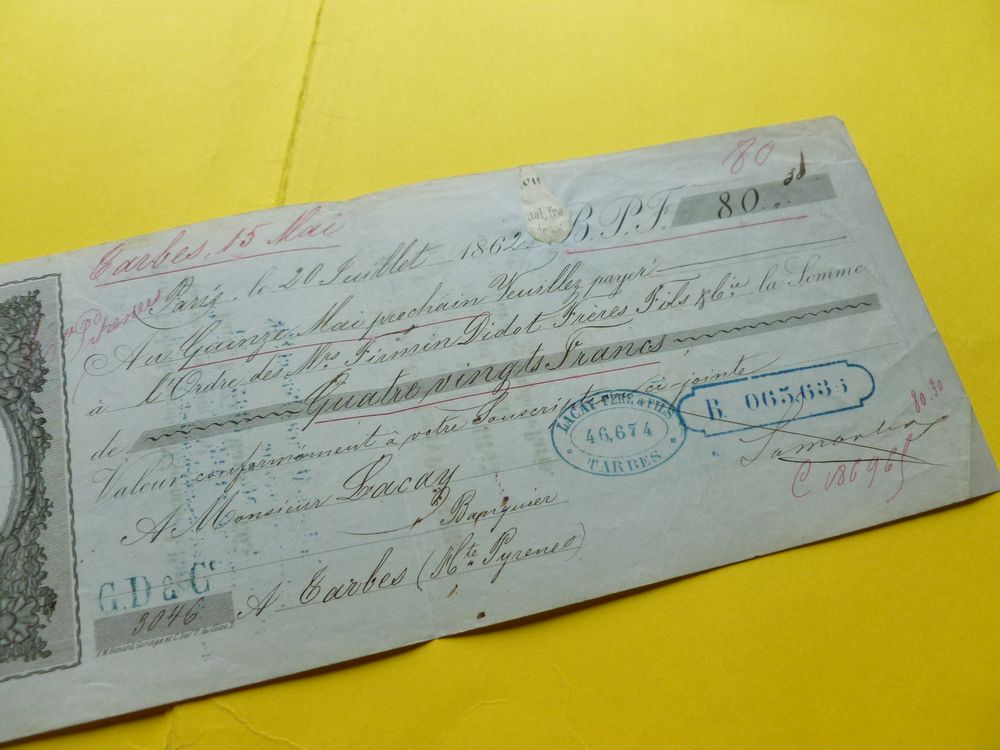 80
Tarbes, 15 Mai
Paris, le 20 Juillet 1862. B.P.F. 80.,,
ital, fra
Au Quinze Mai prochain Veuillez payer
à l'Ordre des Mrs Firmin Didot Frères Fils & Cie la Somme
de Quatre vingts Francs
Valeur conformément à votre Souscription ci-jointe
LACAY PÈRE & FILS
46,674
TARBES
B. 065,635
80.30
C 186965
A Monsieur Lacay
Banquier
G.D & Ce
3046
A Tarbes (Htes Pyrenes)